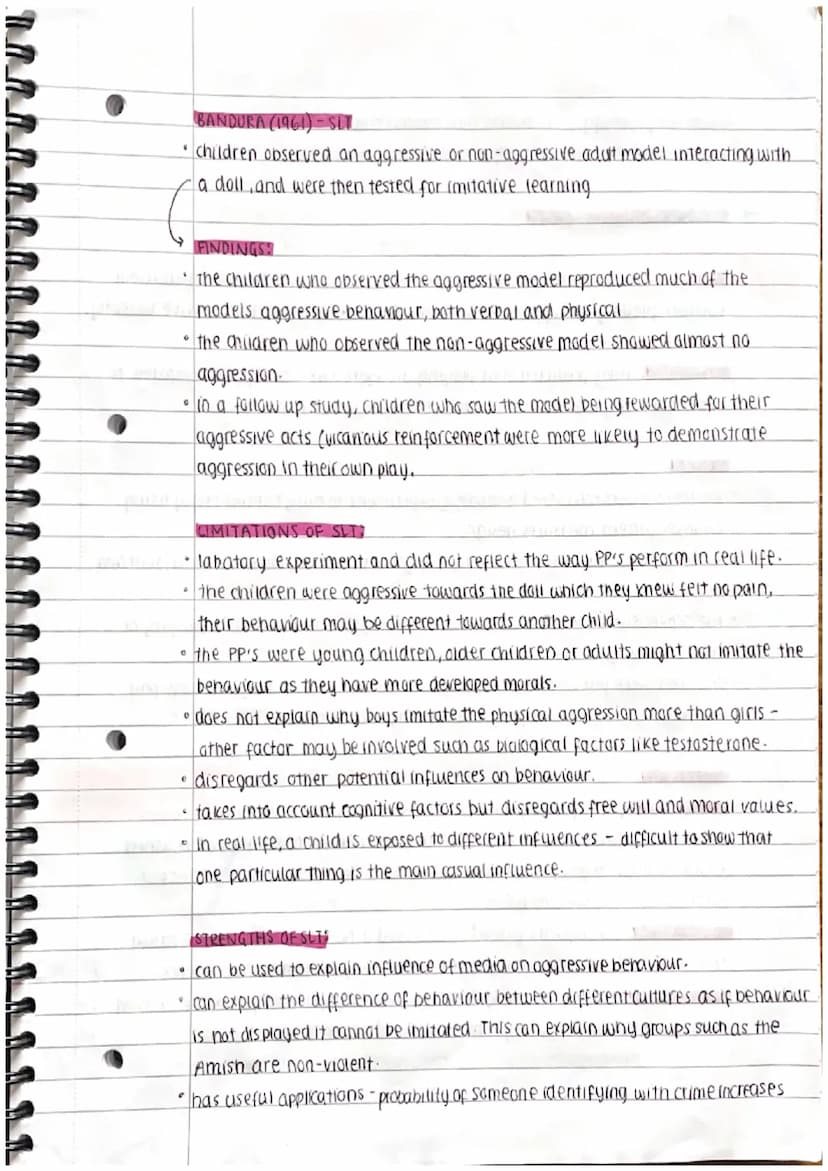 BANDURA (1961) - SLT
• children observed an aggressive or non-aggressive adult model interacting with
a doll, and were then tested for imitative learning
FINDINGS:
• the children who observed the aggressive model reproduced much of the
models aggressive behaviour, both verbal and physical
• the children who observed the non-aggressive model showed almost no
aggression.
• in a follow up study, children who saw the model being rewarded for their
aggressive acts (vicarious reinforcement were more likely to demonstrate
aggression in their own play.
LIMITATIONS OF SLT:
• labatory experiment and did not reflect the way PP's perform in real life.
• the children were aggressive towards the doll which they knew felt no pain,
their behaviour may be different towards another child.
• the PP's were young children, older children or adults might not imitate the
behaviour as they have more developed morals.
• does not explain why boys imitate the physical aggression more than girls -
other factor may be involved such as biological factors like testosterone.
• disregards other potential influences on behaviour.
• takes into account cognitive factors but disregards free will and moral values.
• in real life, a child is exposed to different influences - difficult to show that
one particular thing is the main casual influence.
STRENGTHS OF SLT:
• can be used to explain influence of media on aggressive behaviour.
• can explain the difference of behaviour between different cultures as if behaviour
is not displayed it cannot be imitated. This can explain why groups such as the
Amish are non-violent.
• has useful applications - probability of someone identifying with crime increases